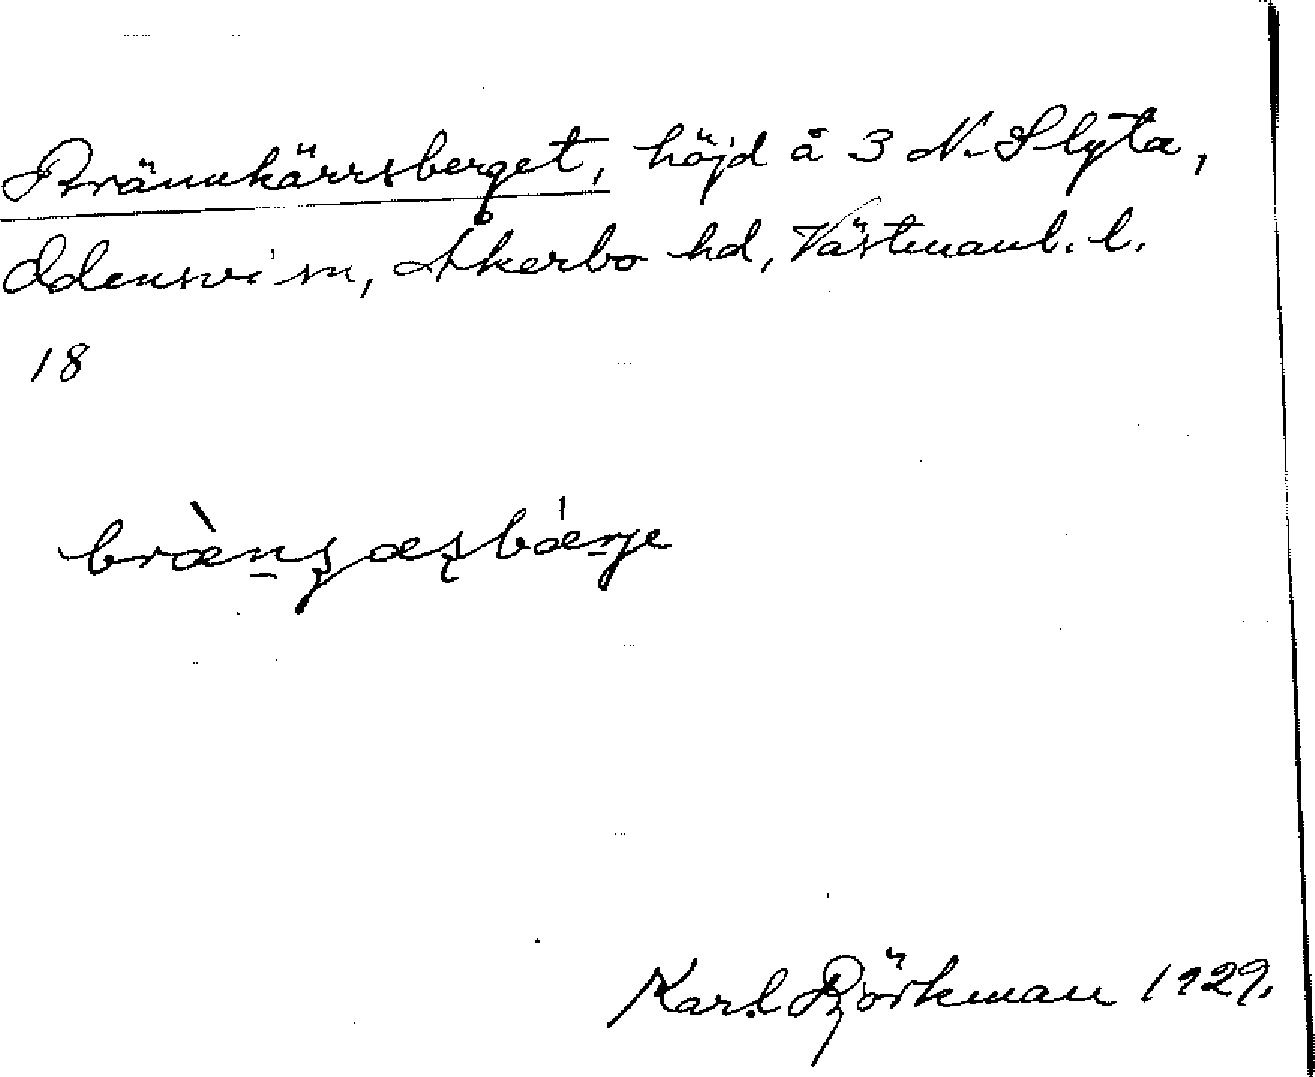 Brännkärrsberget, höjd å 3 N. Slyta,
Odensvi sn, Åkerbo hd, Västmanl. l.
18
Karl Björkman 1929.